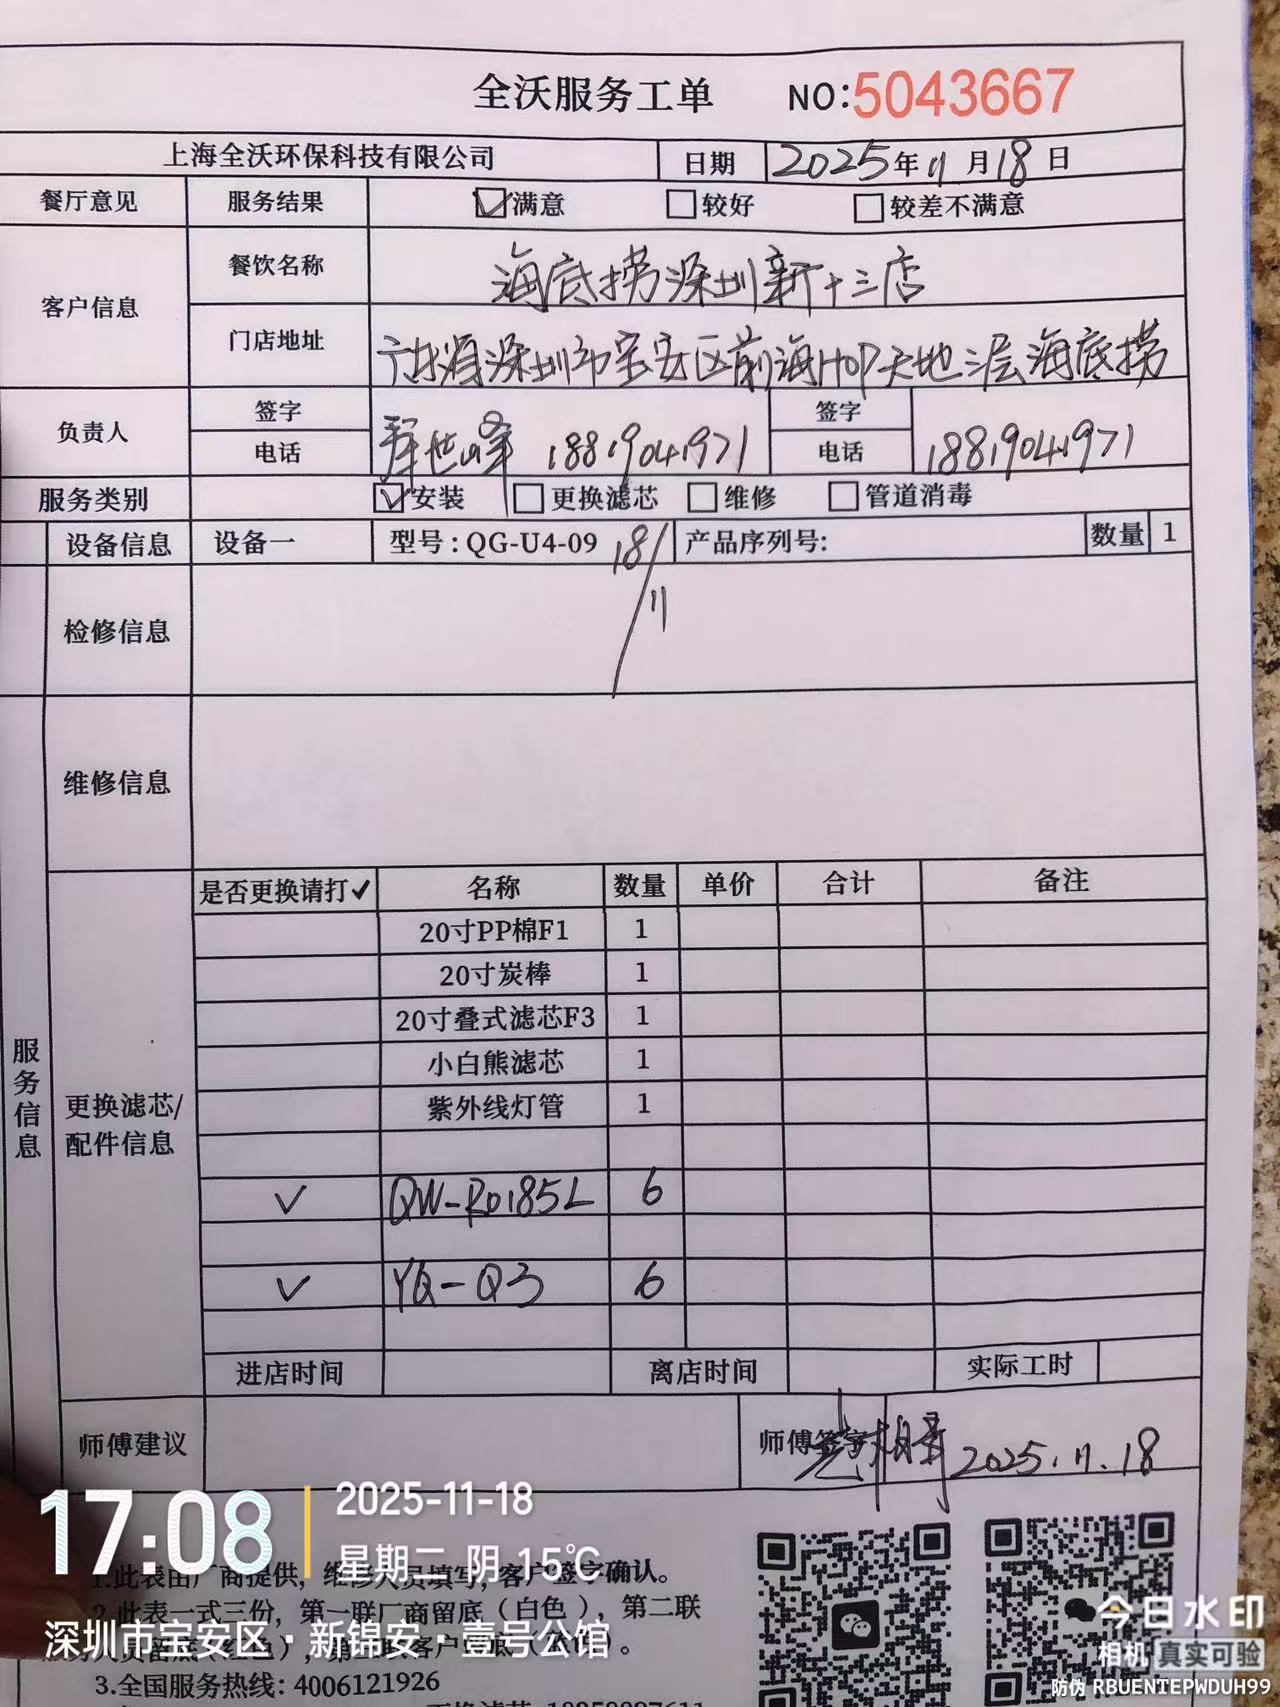 全沃服务工单 NO:5043667
上海全沃环保科技有限公司 日期 2025年11月18日
餐厅意见 服务结果 ☑满意 □较好 □较差不满意
客户信息 餐饮名称 海底捞深圳新十三店
门店地址 深圳市宝安区前海HOP天地三层海底捞
负责人 签字 世峰 签字
电话 18819041971 电话 18819041971
服务类别 ☑安装 □更换滤芯 □维修 □管道消毒
设备信息 设备一 型号:QG-U4-09 产品序列号: 数量 1
18/11
检修信息
维修信息
服务信息
更换滤芯/配件信息
是否更换请打✓ 名称 数量 单价 合计 备注
20寸PP棉F1 1
20寸炭棒 1
20寸叠式滤芯F3 1
小白熊滤芯 1
紫外线灯管 1
✓ QW-R0185L 6
✓ YQ-Q3 6
进店时间 离店时间 实际工时
师傅建议 师傅签字 2025.11.18
17:08 2025-11-18
星期二 阴 15℃
1.此表由厂商提供，维修人员填写，客户签字确认。
2.此表一式三份，第一联厂商留底（白色），第二联
深圳市宝安区·新锦安·壹号公馆
3.全国服务热线：4006121926
今日水印
相机 真实可验
防伪 RBUENTEPWDUH99